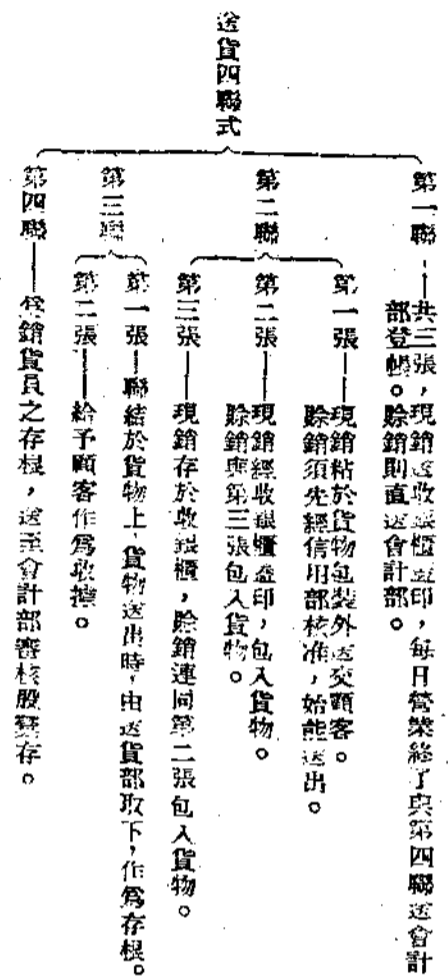 送貨四聯式
第一聯——共三張，現銷送收銀櫃蓋印，每日營業終了與第四聯送會計
部登帳。賒銷則直送會計部。
第二聯
第一張——現銷粘於貨物包裝外送交顧客。
賒銷須先經信用部核准，始能送出。
第二張——現銷經收銀櫃蓋印，包入貨物。
賒銷與第三張包入貨物。
第三張——現銷存於收銀櫃，賒銷連同第二張包入貨物。
第三聯
第一張——聯結於貨物上，貨物送出時，由送貨部取下，作爲存根。
第二張——給予顧客作爲收據。
第四聯——爲銷貨員之存根，送至會計部審核後彙存。